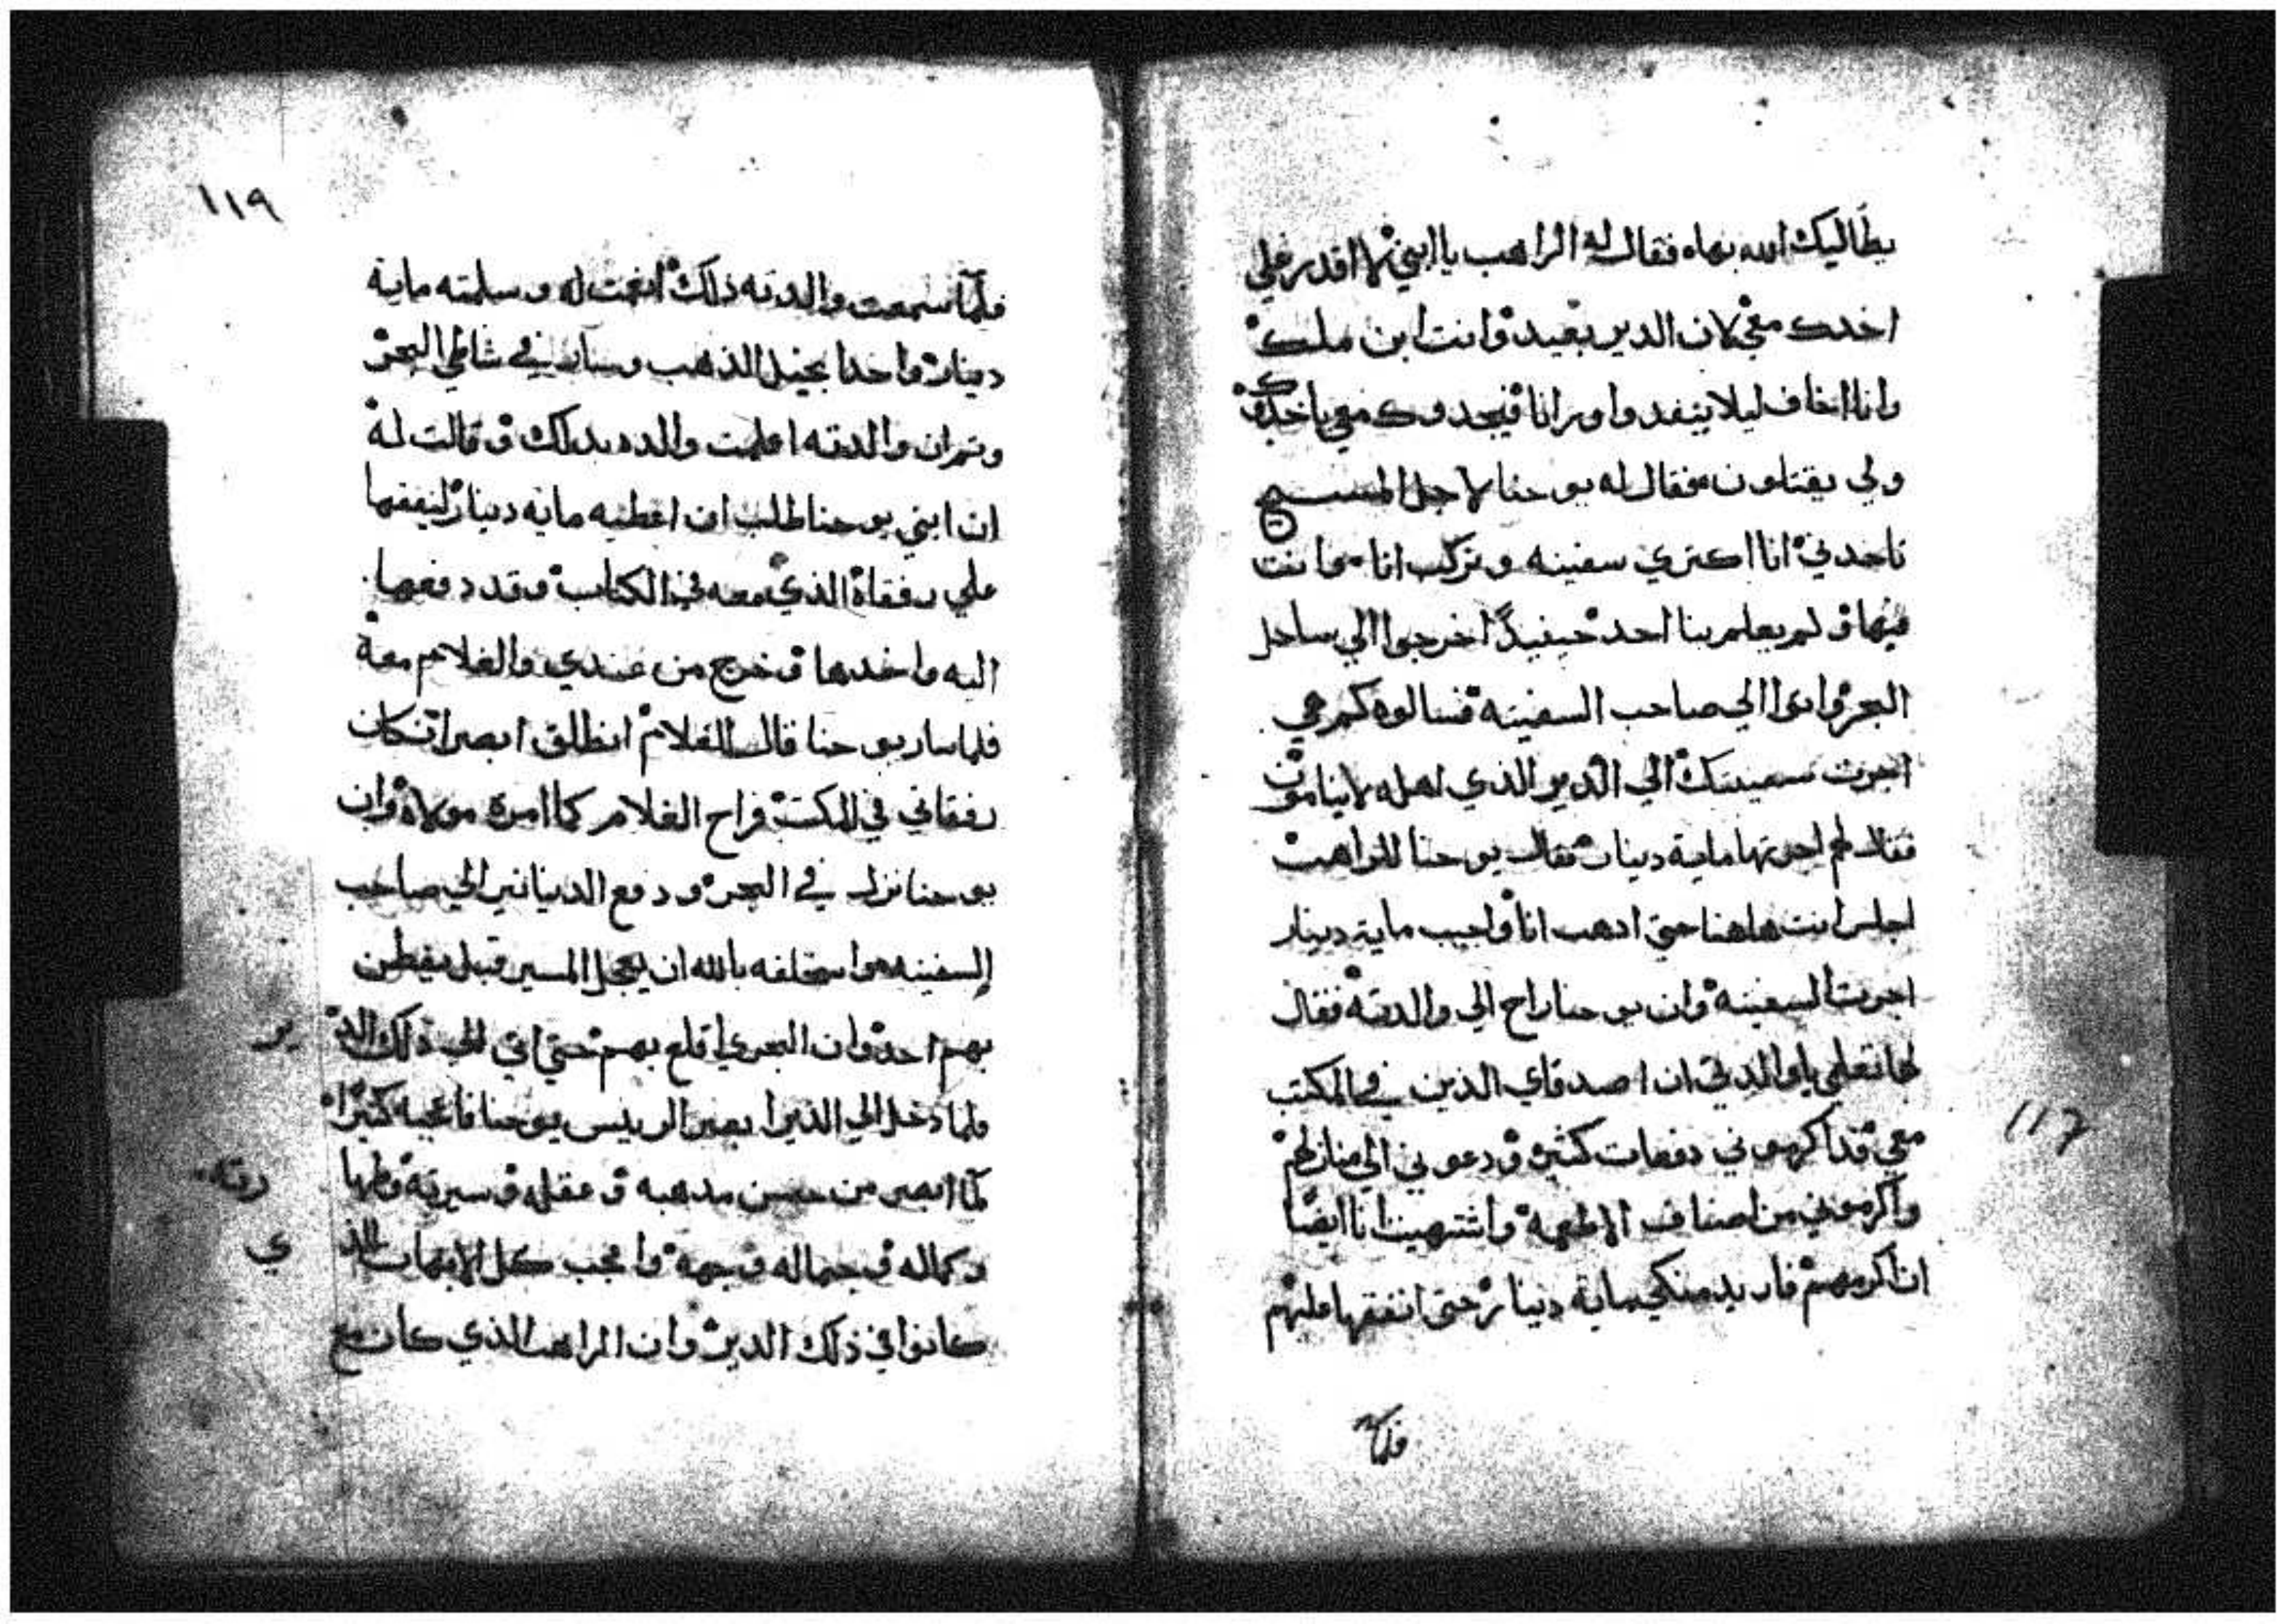 يطاليك الله بهاه فقال له الراهب يا ابني لا اقدر علي
اخدك معي لان الدير بعيد وانت ابن ملك
وانا اخاف ليلا ينفدوا ورانا فيجدوك معي ياخدوك
ولي يقتلون فقال له يوحنا لاجل المسيح
تاخدني انا اكتري سفينه ونركب انا وانت
فيها ولم يعلم بنا احد حينيد اخرجوا الي ساحل
البحر واتوا الي صاحب السفينه فسالوه كم هي
اجرت سفينتك الي الدير الذي اهله لا ينامون
فقال لهم اجرتها ماية دينار فقال يوحنا للراهب
اجلس انت هاهنا حتي ادهب انا واجيب ماية دينار
اجرت السفينه وان يوحنا راح الي والدته فقال
لها تعلمي يا والدتي ان اصدقاي الذين في المكتب
معي قد اكرموني دفعات كثيره ودعوني الي منازلهم
واكرموني من اصناف الاطعمه واشتهيت انا ايضا
ان اكرمهم فاريد منكي ماية دينار حتي انفقها عليهم
فلما
١١٩
فلما سمعت والدته ذلك انعمت له وسلمته ماية
دينار واحدا بخيل الذهب وسار في شاطي البحر
وتم ان والدته اعلمت والده بدلك وقالت له
ان ابني يوحنا طلب ان اعطيه ماية دينار لينفقها
علي رفقاه الذي معه في الكتاب وقد دفعها
اليه واخدها وخرج من عندي والغلام معه
فلما سار يوحنا قال للغلام انطلق ابصر انكان
رفقاتي في المكتب فراح الغلام كما امره مولاه وان
يوحنا نزل في البحر ودفع الدنانير الي صاحب
السفينه واستحلفه بالله ان يعجل المسير قبل يفطن
بهم احد وان البحري اقلع بهم حتي اتي الي ذلك الدير
فلما دخل الي الدير ابصر الرييس يوحنا فاعجبه كثيرا
لما ابصر من حسن مدهبه وعقله وسيرته وطهارته
وكماله وجماله وبهجة واعجب كل الابهات الذي
كانوا في ذلك الدير وان الراهب الذي كان مع